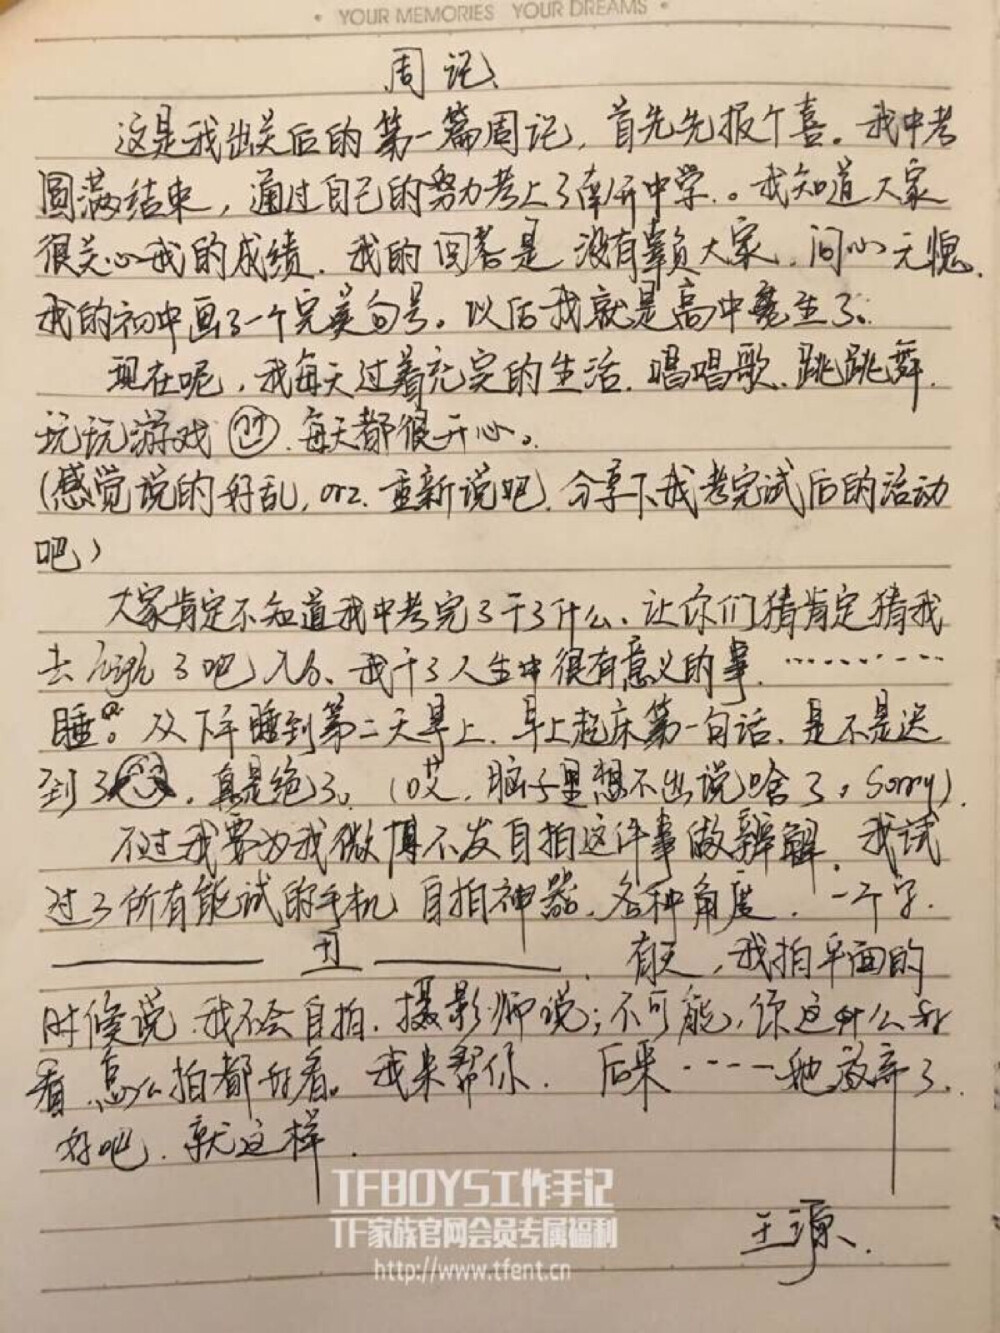 YOUR MEMORIES YOUR DREAMS
周记
这是我出关后的第一篇周记，首先先报个喜。我中考
圆满结束，通过自己的努力考上了南开中学。我知道大家
很关心我的成绩，我的回答是没有辜负大家，问心无愧，
我的初中画了一个完美句号。以后我就是高中魔生了。
现在呢，我每天过着充实的生活，唱唱歌、跳跳舞，
玩玩游戏，每天都很开心。
（感觉说的好乱，orz，重新说吧，分享下我考完试后的活动
吧）
大家肯定不知道我中考完了干了什么，让你们猜肯定猜我
去high了吧，我干了人生中很有意义的事…………
睡。从下午睡到第二天早上，早上起床第一句话，是不是迟
到了，真是绝了。（哎，脑子里想不出说啥了，Sorry）。
不过我要为我微博不发自拍这件事做辩解，我试
过了所有能试的手机，自拍神器，各种角度，一个字，
丑。有天，我拍平面的
时候说，我不会自拍，摄影师说；不可能，你这么好
看，怎么拍都好看。我来帮你，后来……她放弃了。
好吧，就这样
王源
TFBOYS工作手记
TF家族官网会员专属福利
http://www.tfent.cn